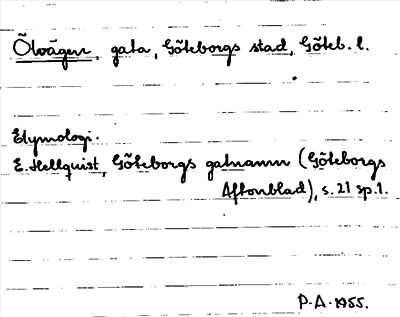 Ölvägen, gata, Göteborgs stad, Göteb. l.
Etymologi.
E. Hellquist, Göteborgs gatnamn (Göteborgs
Aftonblad), s. 21 sp. 1.
P. A. 1955.